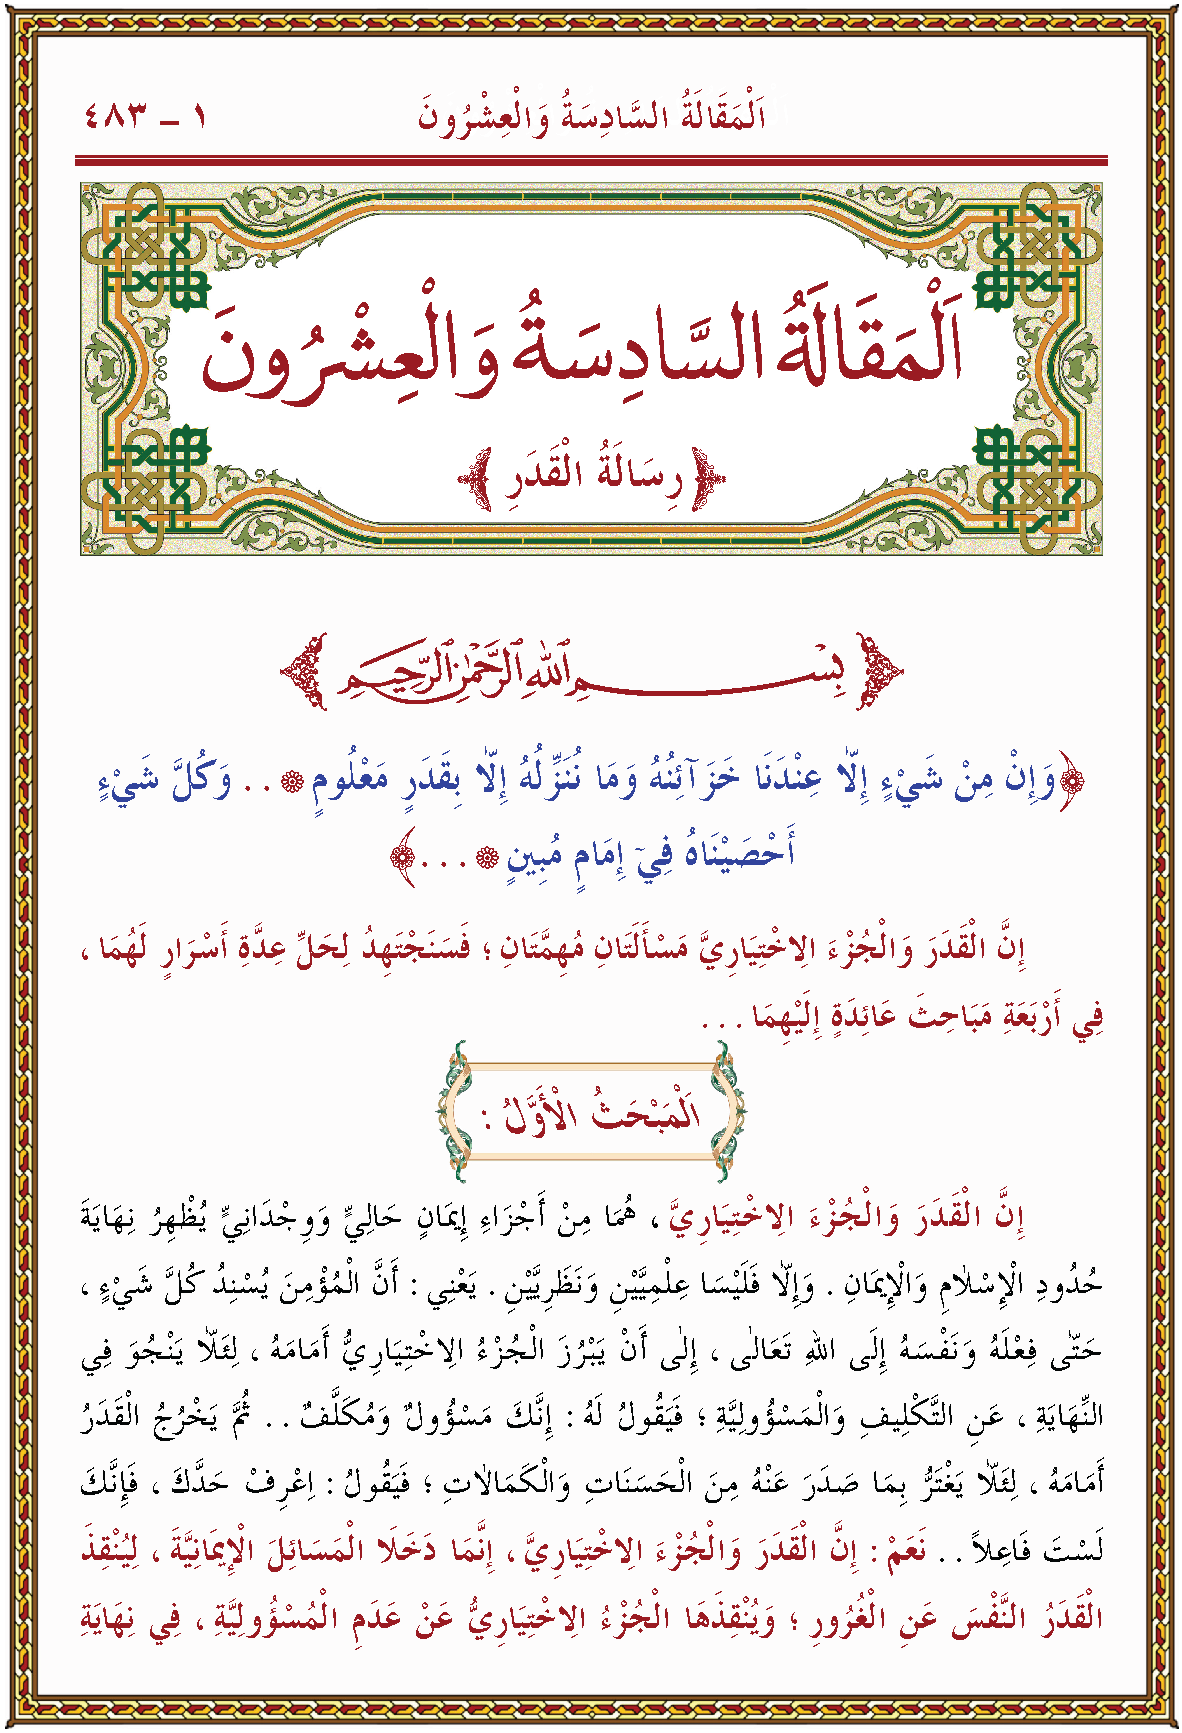 اَلْمَقَالَةُ السَّادِسَةُ وَالْعِشْرُونَ ١ ـ ٤٨٣
اَلْمَقَالَةُ السَّادِسَةُ وَالْعِشْرُونَ
رِسَالَةُ الْقَدَرِ
بِسْمِ ٱللهِ ٱلرَّحْمٰنِ ٱلرَّحِيمِ
﴿وَإِنْ مِنْ شَيْءٍ إِلاّٰ عِنْدَنَا خَزَآئِنُهُ وَمَا نُنَزِّلُهُ إِلاّٰ بِقَدَرٍ مَعْلُومٍ ۞ . . وَكُلَّ شَيْءٍ
أَحْصَيْنَاهُ فِيٓ إِمَامٍ مُبِينٍ ۞ . . . ﴾
إِنَّ الْقَدَرَ وَالْجُزْءَ الِاخْتِيَارِيَّ مَسْأَلَتَانِ مُهِمَّتَانِ ؛ فَسَنَجْتَهِدُ لِحَلِّ عِدَّةِ أَسْرَارٍ لَهُمَا ،
فِي أَرْبَعَةِ مَبَاحِثَ عَائِدَةٍ إِلَيْهِمَا . . .
اَلْمَبْحَثُ الْأَوَّلُ :
إِنَّ الْقَدَرَ وَالْجُزْءَ الِاخْتِيَارِيَّ ، هُمَا مِنْ أَجْزَاءِ إِيمَانٍ حَالِيٍّ وَوِجْدَانِيٍّ يُظْهِرُ نِهَايَةَ
حُدُودِ الْإِسْلاٰمِ وَالْإِيمَانِ . وَإِلاّٰ فَلَيْسَا عِلْمِيَّيْنِ وَنَظَرِيَّيْنِ . يَعْنِي : أَنَّ الْمُؤْمِنَ يُسْنِدُ كُلَّ شَيْءٍ ،
حَتّٰى فِعْلَهُ وَنَفْسَهُ إِلَى اللهِ تَعَالٰى ، إِلٰى أَنْ يَبْرُزَ الْجُزْءُ الِاخْتِيَارِيُّ أَمَامَهُ ، لِئَلاّٰ يَنْجُوَ فِي
النِّهَايَةِ ، عَنِ التَّكْلِيفِ وَالْمَسْؤُولِيَّةِ ؛ فَيَقُولُ لَهُ : إِنَّكَ مَسْؤُولٌ وَمُكَلَّفٌ . . ثُمَّ يَخْرُجُ الْقَدَرُ
أَمَامَهُ ، لِئَلاّٰ يَغْتَرَّ بِمَا صَدَرَ عَنْهُ مِنَ الْحَسَنَاتِ وَالْكَمَالاٰتِ ؛ فَيَقُولُ : اِعْرِفْ حَدَّكَ ، فَإِنَّكَ
لَسْتَ فَاعِلاً . . نَعَمْ : إِنَّ الْقَدَرَ وَالْجُزْءَ الِاخْتِيَارِيَّ ، إِنَّمَا دَخَلَا الْمَسَائِلَ الْإِيمَانِيَّةَ ، لِيُنْقِذَ
الْقَدَرُ النَّفْسَ عَنِ الْغُرُورِ ؛ وَيُنْقِذَهَا الْجُزْءُ الِاخْتِيَارِيُّ عَنْ عَدَمِ الْمُسْؤُولِيَّةِ ، فِي نِهَايَةِ